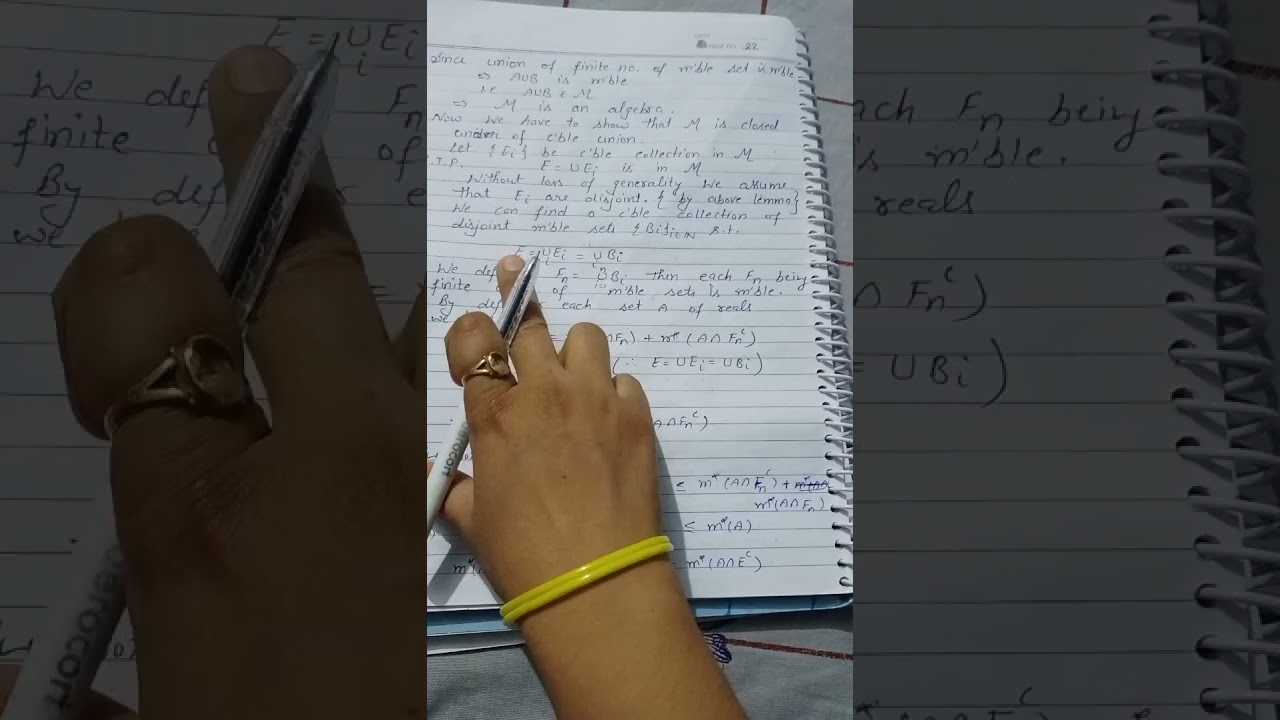 22
Since union of finite no. of m'ble set is m'ble
⇒ AUB is m'ble
i.e AUB ∈ M
⇒ M is an algebra.
Now We have to show that M is closed
under of c'ble union
Let {Ei} be c'ble collection in M
T.P. E = UEi is in M
Without loss of generality We assume
that Ei are disjoint. { by above lemma}
We can find a c'ble collection of
disjoint m'ble sets {Bi}i∈N s.t.
E = UiEi = UiBi
We def Fn = ⁿUi=1 Bi then each Fn being
finite of m'ble sets is m'ble.
By def each set A of reals
we
= ∩Fn) + m*(A∩Fnᶜ)
(∵ E = UEi = UBi)
A∩Fnᶜ)
≤ m*(A∩Fnᶜ) +
m*(A∩Fn)
≤ m*(A)
m* m*(A∩Eᶜ)